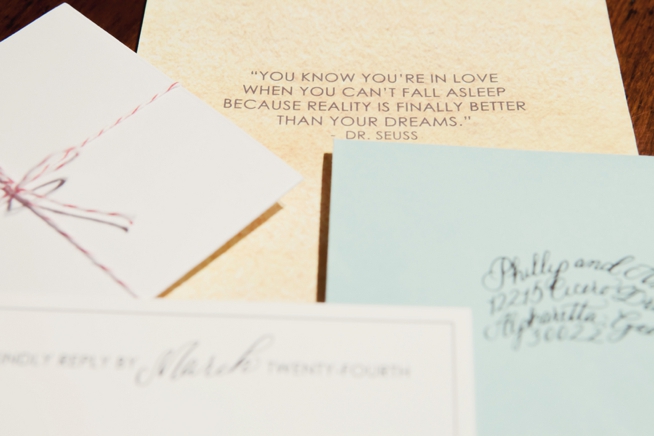 “YOU KNOW YOU’RE IN LOVE
WHEN YOU CAN’T FALL ASLEEP
BECAUSE REALITY IS FINALLY BETTER
THAN YOUR DREAMS.”
- DR. SEUSS
Phillip and
12215 Cicero
Alpharetta,
30022
KINDLY REPLY BY March TWENTY-FOURTH